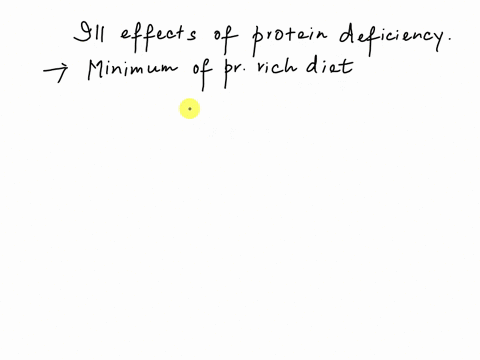 Ill effects of protein deficiency.
→ Minimum of pr. rich diet